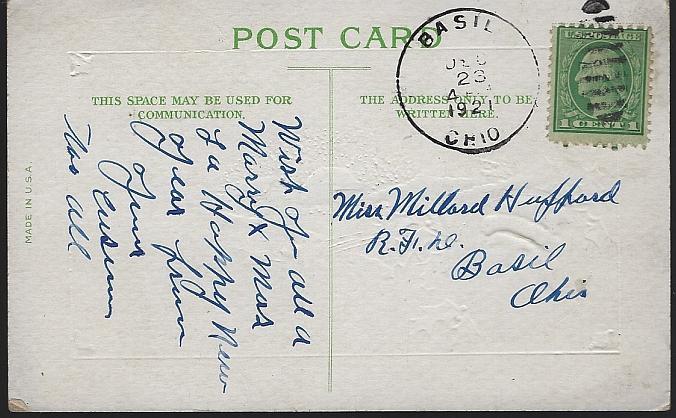 POST CARD
THIS SPACE MAY BE USED FOR
COMMUNICATION.
THE ADDRESS ONLY TO BE
WRITTEN HERE.
BASIL
DEC
23
1921
OHIO
U.S. POSTAGE
1 CENT 1
MADE IN U.S.A.
Wish you all a
Marry X Mas
& a Happy New
year from
your
Cusin
Miss Millard Hufford
R.F.D.
Basil
Ohio